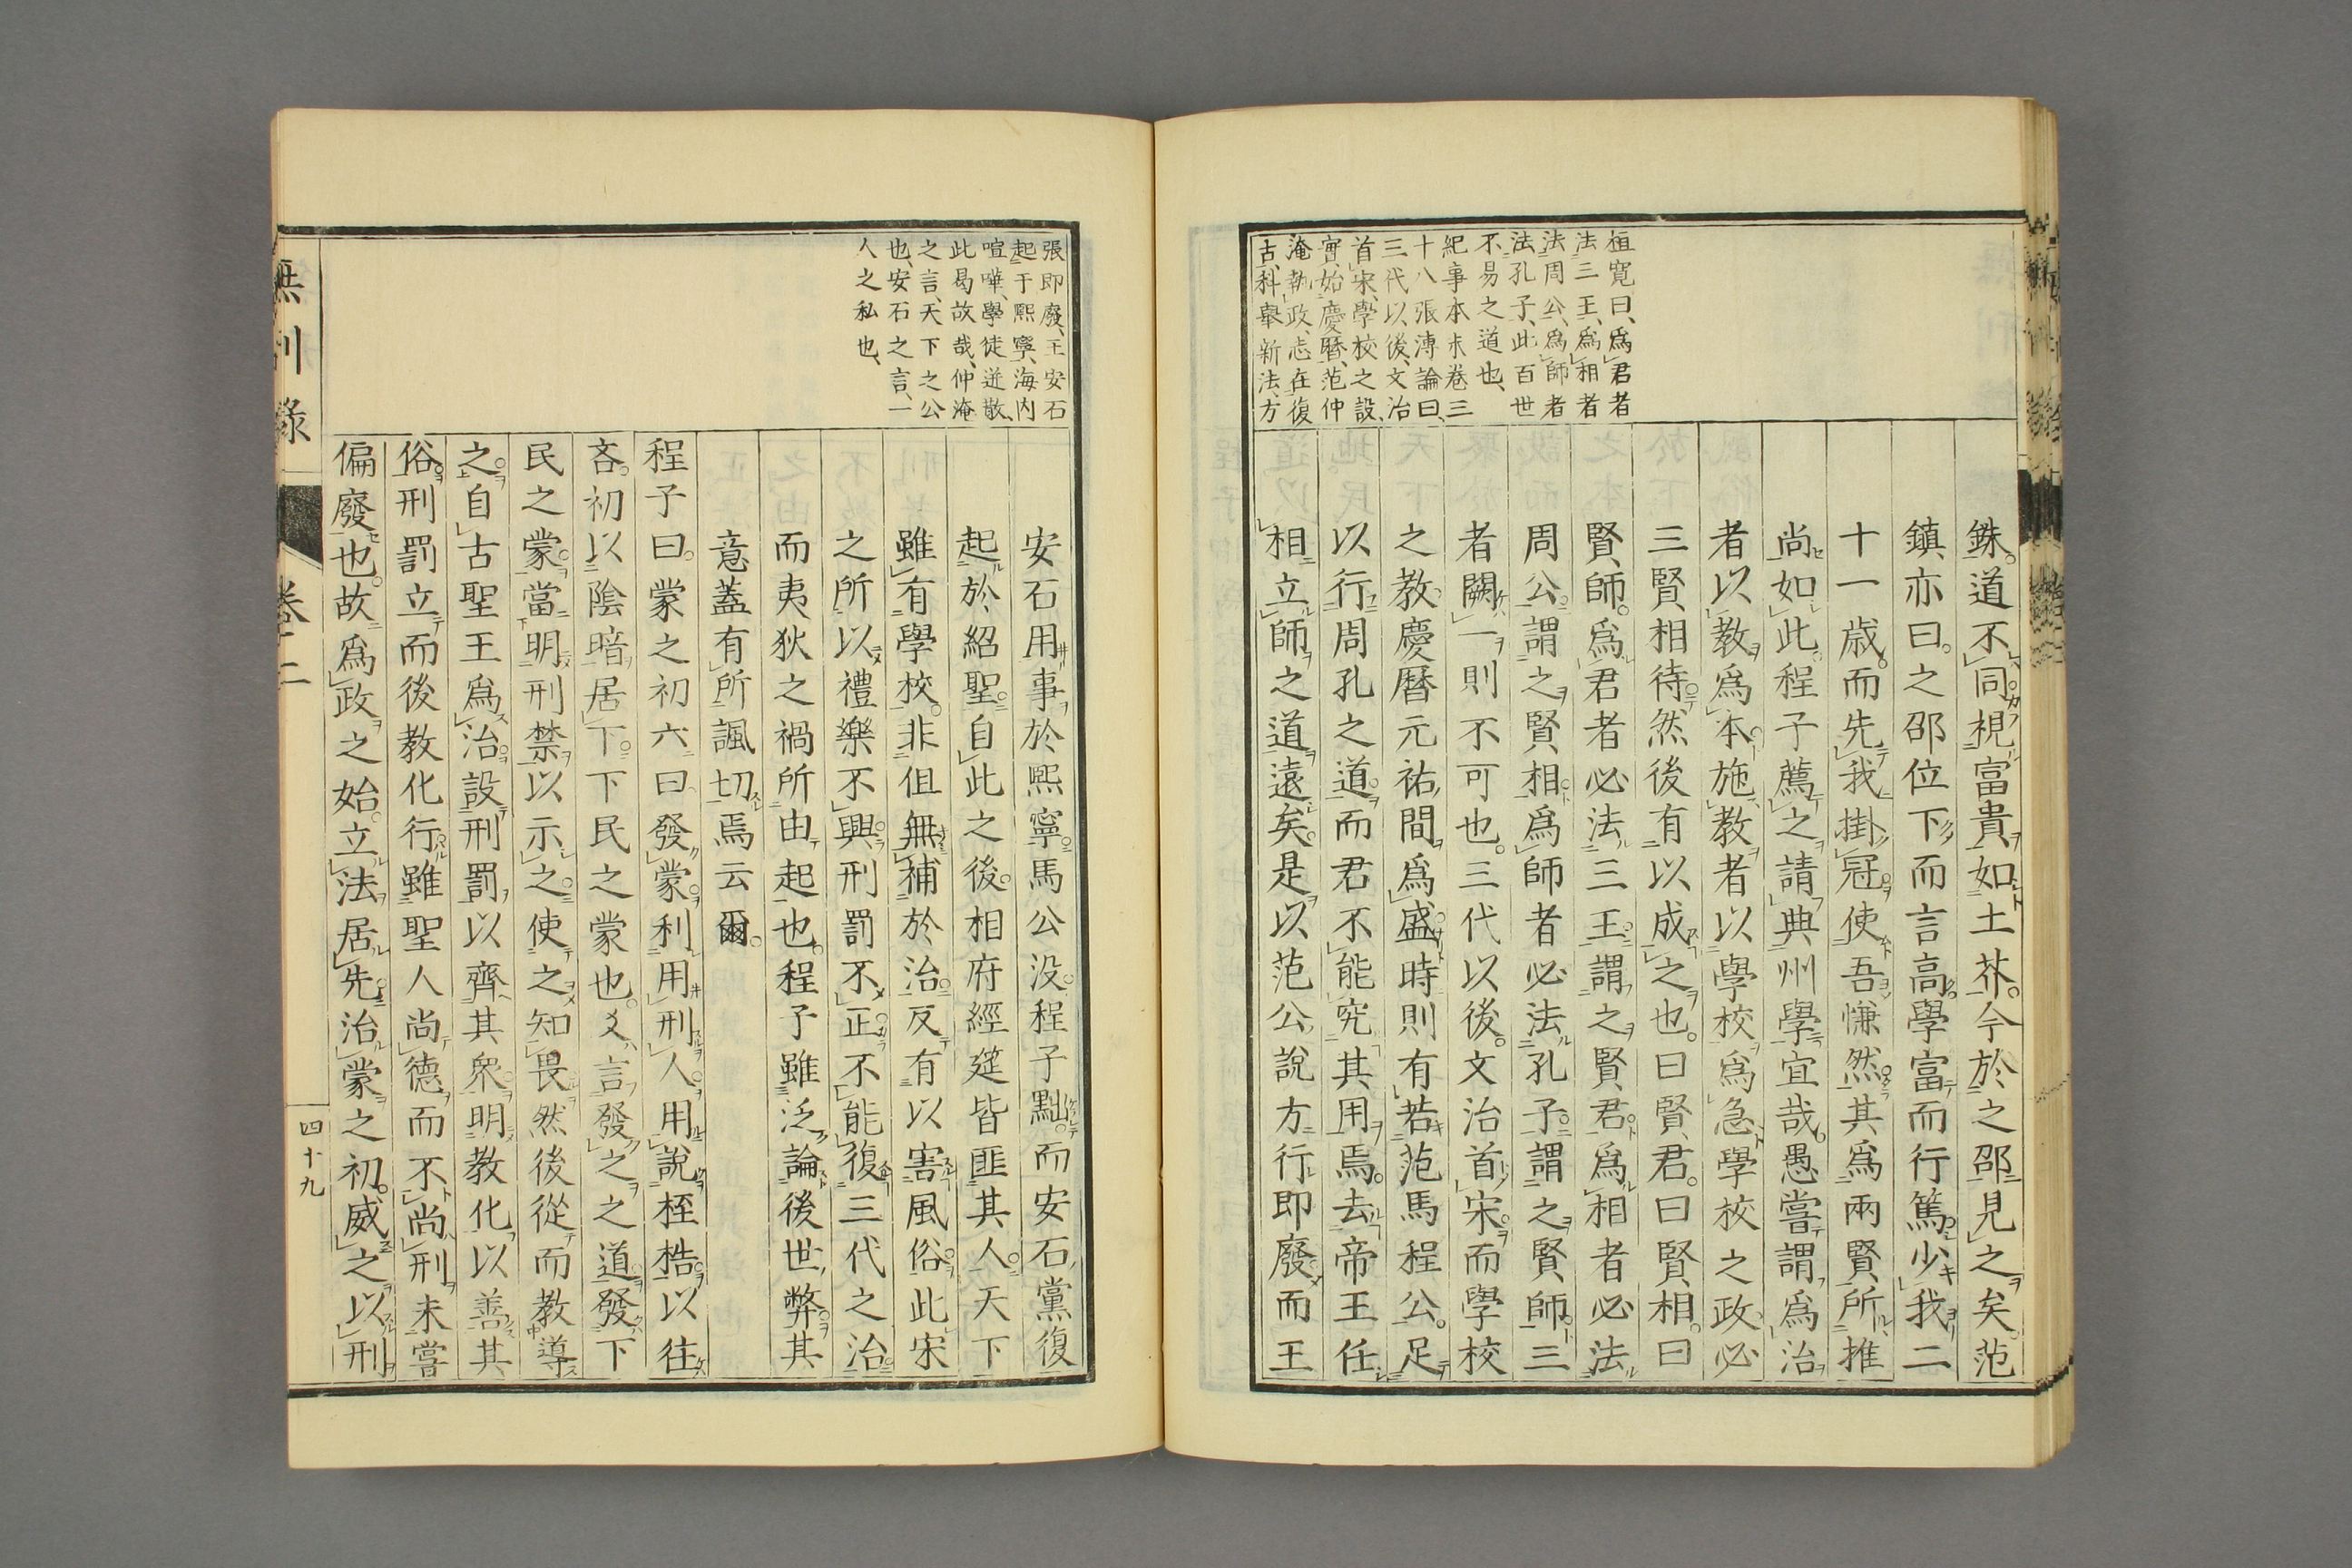 桓寬曰、爲君者
法三王、爲相者
法周公、爲師者
法孔子、此百世
不易之道也、
紀事本末卷三
十八張溥論曰、
三代以後、文治
首宋、學校之設、
實始慶曆、范仲
淹執政、志在復
古、科舉新法、方
銖。道不同視富貴如土芥。今於之邵見之矣。范
鎮亦曰。之邵位下而言高。學富而行篤。少我二
十一歲。而先我掛冠。使吾慊然。其爲兩賢所推
尚如此。程子薦之請典州學。宜哉。愚嘗謂爲治
者以教爲本。施教者以學校爲急。學校之政必
三賢相待。然後有以成之也。曰賢君。曰賢相。曰
賢師。爲君者必法三王。謂之賢君。爲相者必法
周公。謂之賢相。爲師者必法孔子。謂之賢師。三
者闕一則不可也。三代以後。文治首宋。而學校
之教。慶曆元祐間爲盛。時則有若范馬程公。足
以行周孔之道。而君不能究其用焉。去帝王任
相立師之道遠矣。是以范公說方行即廢。而王
張即廢、王安石
起于熙寧、海內
喧嘩、學徒逆散、
此曷故哉、仲淹
之言、天下之公
也、安石之言、一
人之私也、
安石用事於熙寧。馬公没。程子黜。而安石黨復
起於紹聖。自此之後。相府經筵皆匪其人。天下
雖有學校。非但無補於治。反有以害風俗。此宋
之所以禮樂不興。刑罰不正。不能復三代之治。
而夷狄之禍所由起也。程子雖泛論後世弊。其
意蓋有所諷切焉云爾。
程子曰。蒙之初六曰。發蒙。利用刑人。用說桎梏。以往
吝。初以陰暗居下。下民之蒙也。爻言發之之道。發下
民之蒙。當明刑禁以示之。使之知畏。然後從而教導
之。自古聖王爲治。設刑罰以齊其衆。明教化以善其
俗。刑罰立而後教化行。雖聖人尚德而不尚刑。未嘗
偏廢也。故爲政之始。立法居先。治蒙之初。威之以刑
無刊錄
卷十二
四十九